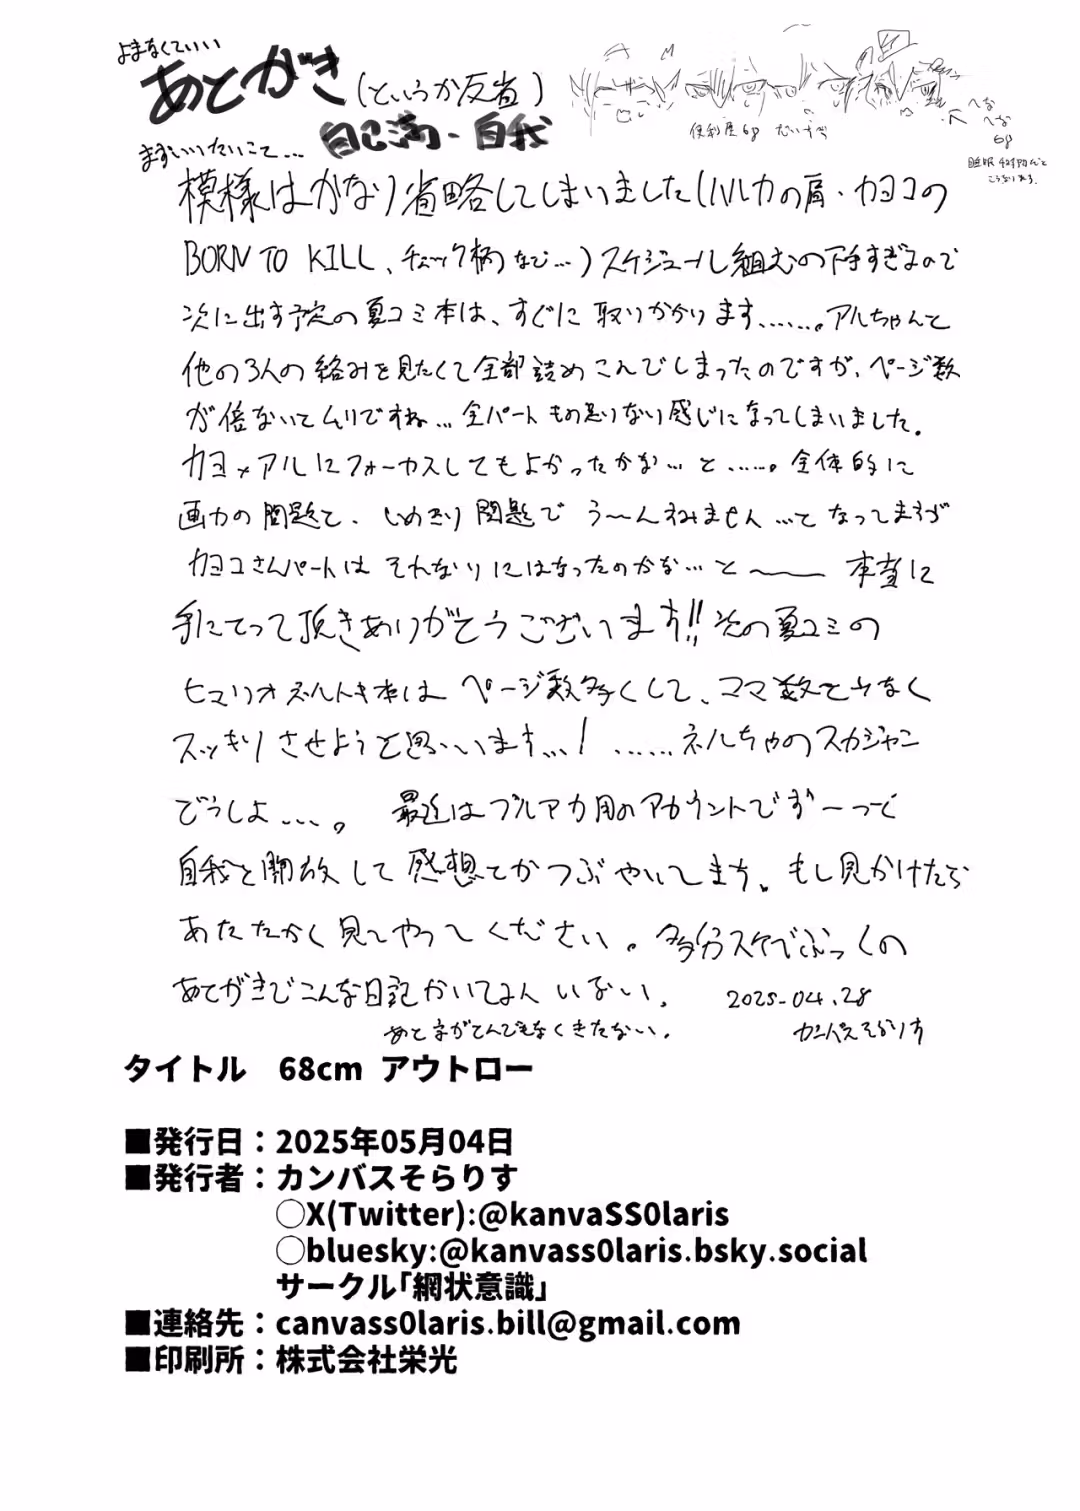 よまなくていい
あとがき(というか反省)
自己満・自我
便利屋68 だいすき
へな
へな
68
睡眠時間ないと
こうなる。
まずいいたいこと...
模様はかなり省略してしまいました(ハルカの肩・カヨコの
BORN TO KILL、チェック柄など...)スケジュール組むの下手すぎるので
次に出す予定の夏コミ本は、すぐに取りかかります.......。アルちゃんと
他の3人の絡みを見たくて全部詰めこんでしまったのですが、ページ数
が倍ないとムリですね...全パートもの足りない感じになってしまいました。
カヨ×アルにフォーカスしてもよかったかな...と......。全体的に
画力の問題と、しめきり問題でう〜んすみません...となってますが
カヨコさんパートはそれなりにはなったのかな...と〜 本当に
手にとって頂きありがとうございます!!次の夏コミの
ヒマリオネルトキ本は ページ数多くして、コマ数を少なく
スッキリさせようと思います...! ......ネルちゃんのスカジャン
どうしよ...。 最近はブルアカ用のアカウントでずーっと
自我を開放して感想とかつぶやいてます。もし見かけたら
あたたかく見てやってください。多分スケベぶっくの
あとがきでこんな日記かいてる人いない。 2025.04.28
あと字がとんでもなくきたない。 カンバスそらりす
タイトル 68cm アウトロー
■発行日：2025年05月04日
■発行者：カンバスそらりす
○X(Twitter):@kanvaSS0laris
○bluesky:@kanvass0laris.bsky.social
サークル「網状意識」
■連絡先：canvass0laris.bill@gmail.com
■印刷所：株式会社栄光